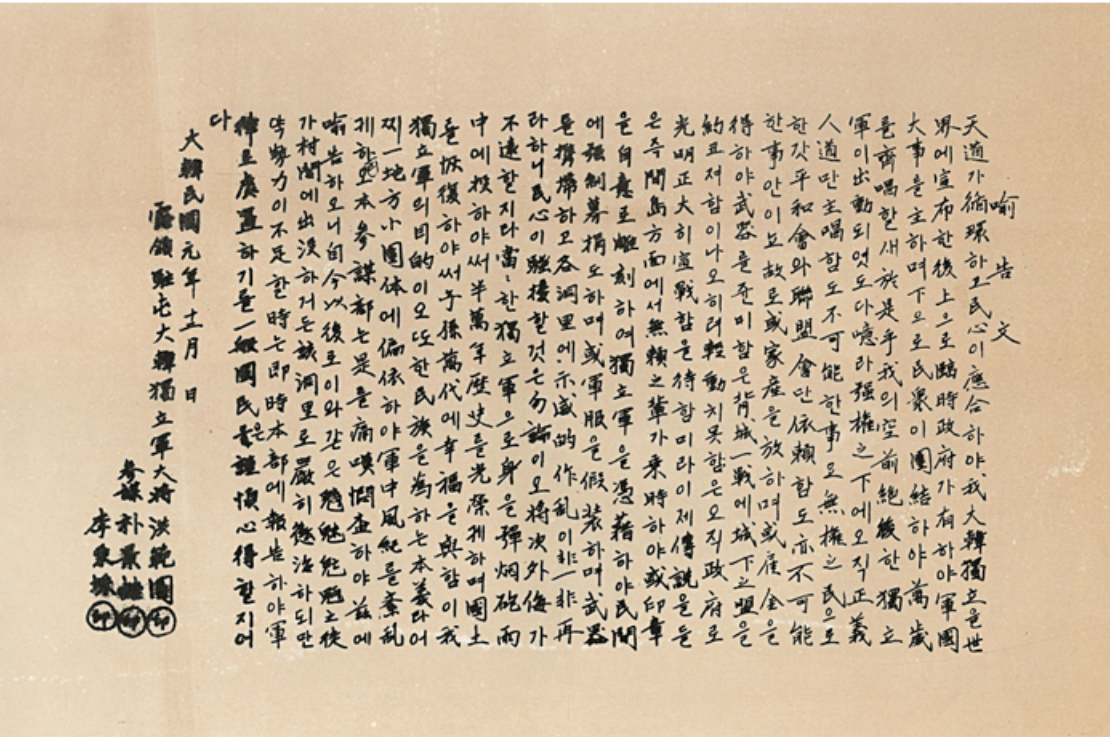 喻告文
天道가循環하고民心이應合하야我大韓獨立을世
界에宣布한後上으로臨時政府가有하야軍國
大事을主하며下으로民衆이團結하야萬歲
를齊唱할새於是乎我의空前絶後한獨立
軍이出動되엿도다噫라强權之下에오직正義
人道만主唱함도不可能한事오無權之民으로
한갓平和會와聯盟會만依賴함도亦不可能
한事안이뇨故로或家産을放하며或雇金을
得하야武器를준비함은背城一戰에城下之盟을
約고져함이나오히려輕動치못함은오직政府로
光明正大히宣戰함을待함미라이제傳說을듣
은즉間島方面에서無賴之輩가乘時하야或印章
을自意로雕刻하여獨立軍을憑藉하야民間
에强制募捐도하며或軍服을假装하며武器
를携帶하고各洞里에示威的作乱이非一非再
라하니民心이騷擾할것은勿論이오將次外侮가
不遠할지라當當한獨立軍으로身을彈烟砲雨
中에投하야써半萬年歷史를光榮케하며國土
를恢復하야써子孫萬代에幸福을與함이我
獨立軍의目的이오또한民族을爲하는本義라어
찌一地方小團体에偏依하야軍中風紀를紊乱
케하오本参謀部는是를痛嘆하야玆에
喻告하오니自今以後로이와갇은魑魅魍魎之徒
가村閭에出没하거든該洞里로嚴히懲治하되만
약勢力이不足할時는即時本部에報告하야軍
律로處置하기를一般國民은謹愼心得할지어
다
大韓民國元年十二月 日
露領駐屯大韓獨立軍大將 洪範圖 印
参謀 朴景喆 印
李東珠 印